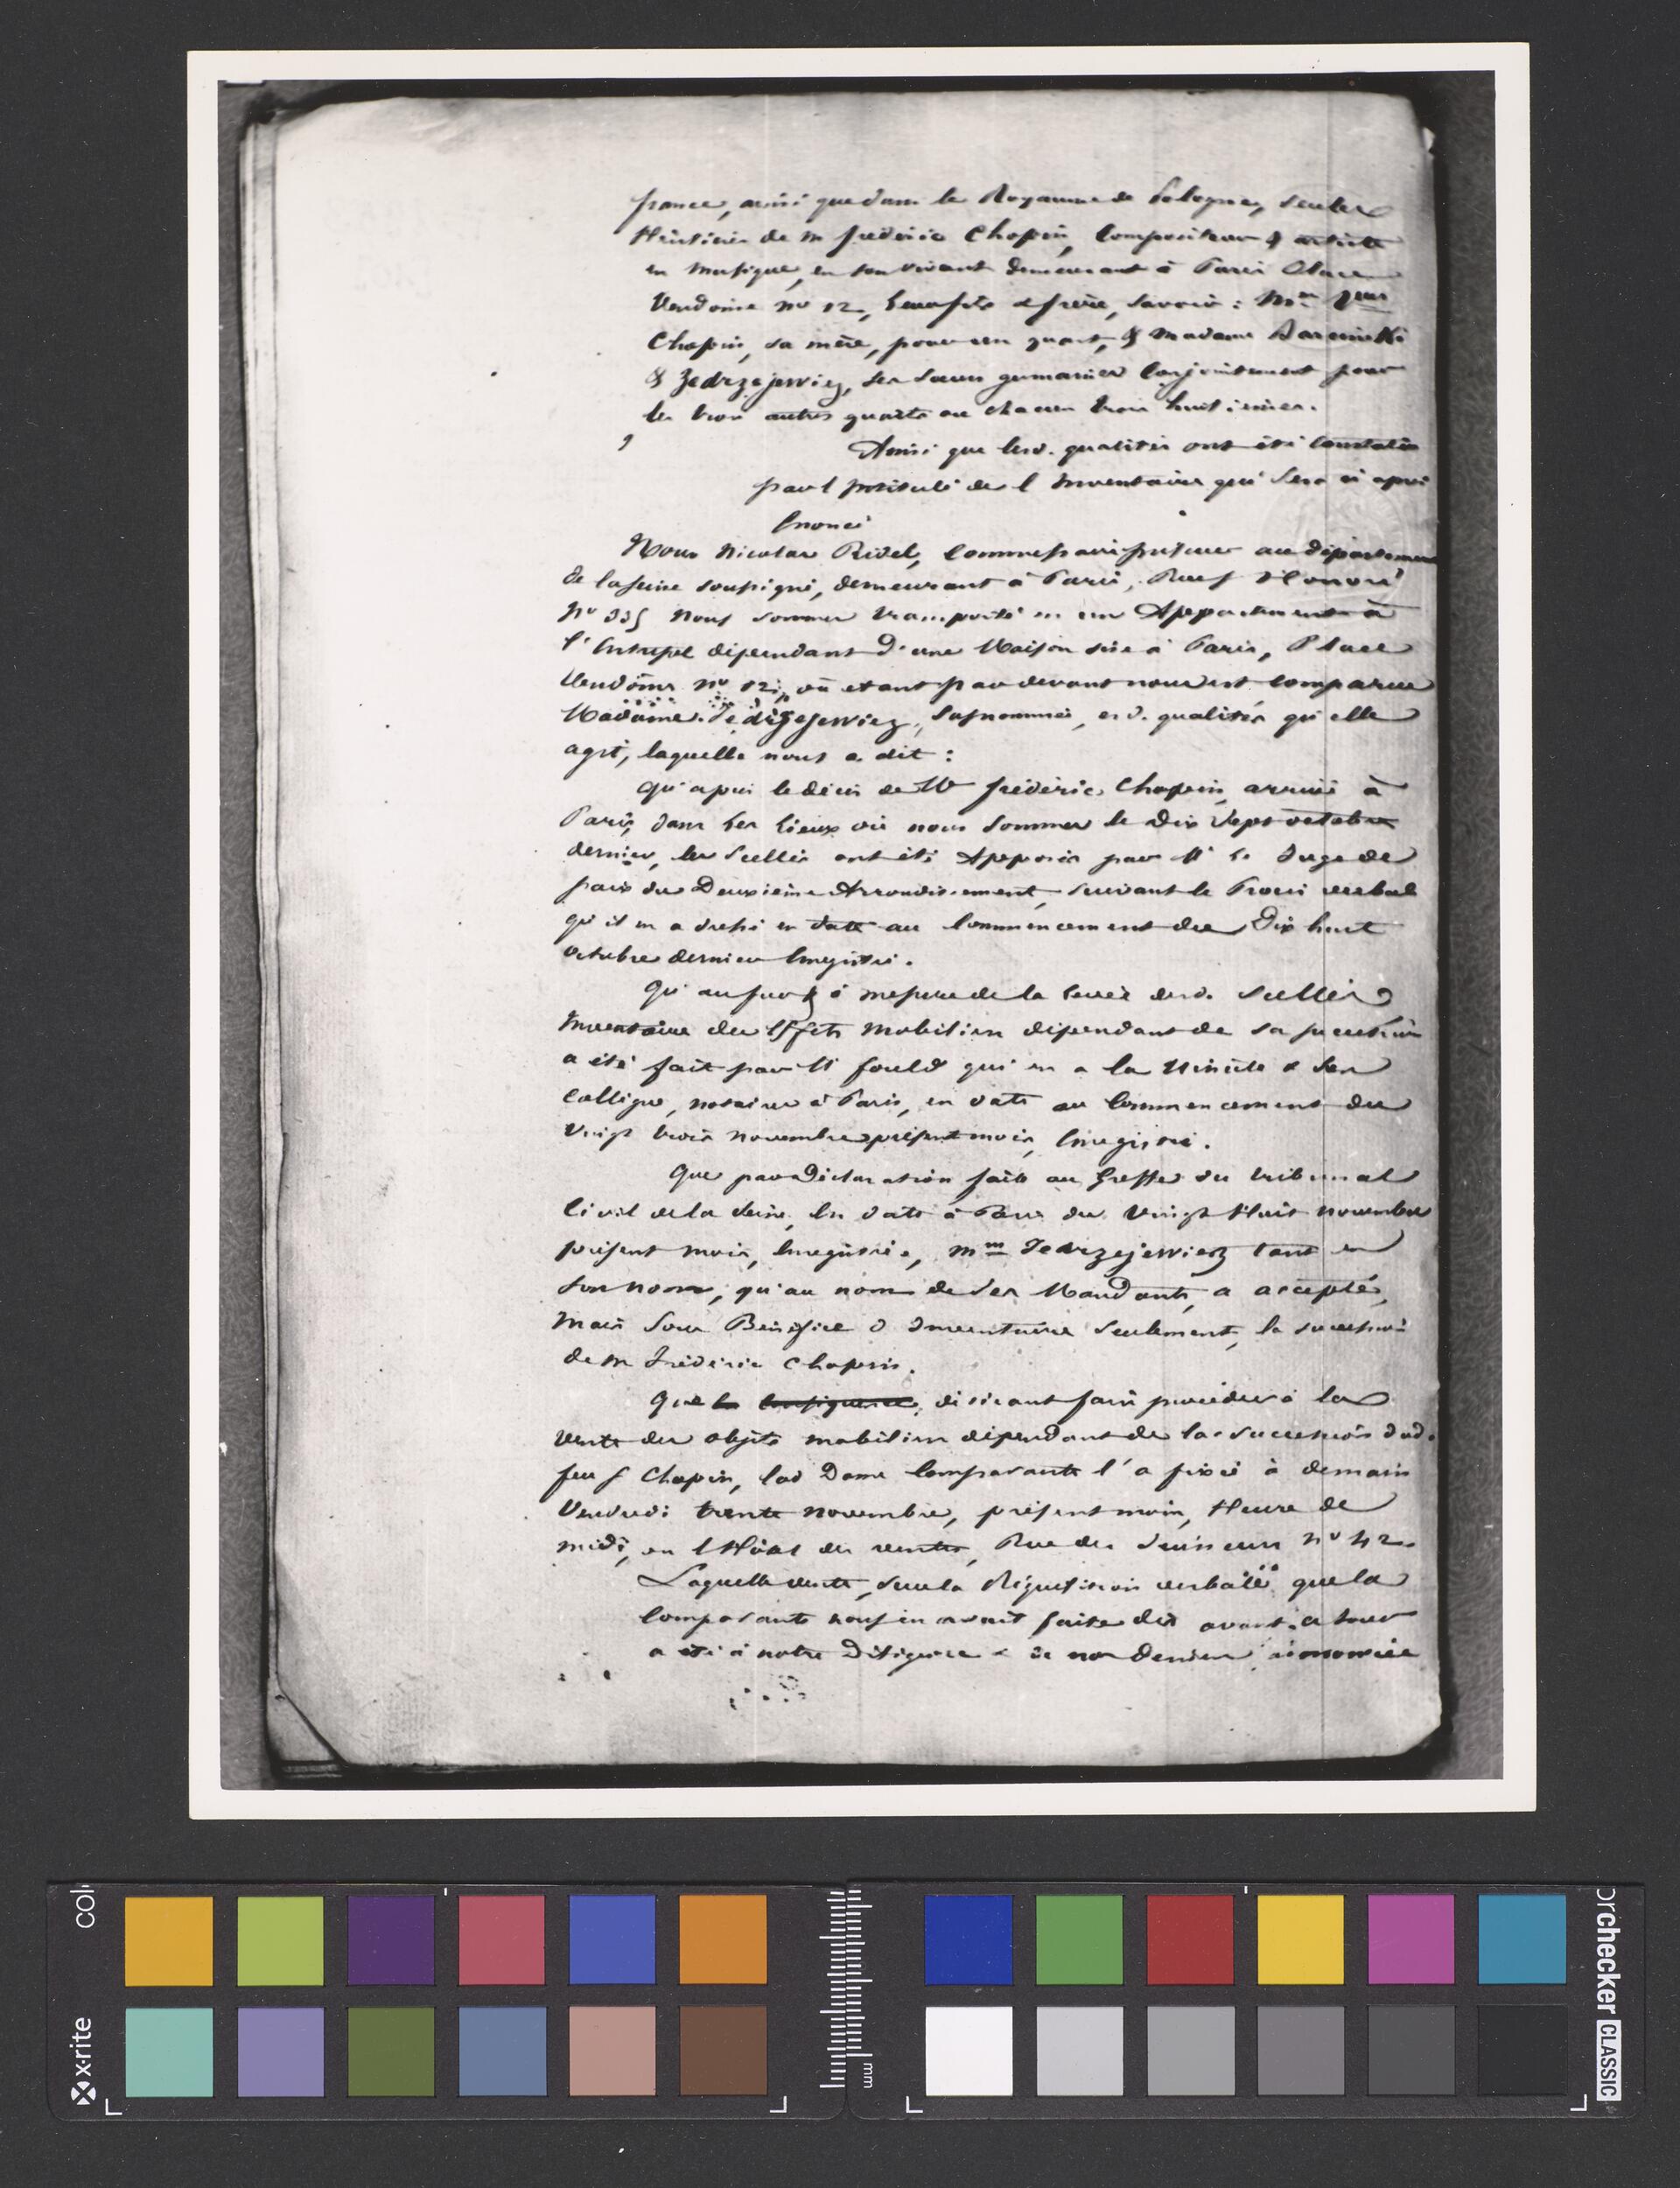 france, ainsi que dans le Royaume de Pologne, seules
Héritières de m frédéric Chopin, Compositeur & artiste
en musique, en son vivant demeurant à Paris Place
Vendôme no 12, leur fils & frère, savoir : Mme
Chopin, sa mère, pour un quart, & madame Barcinski
& Jedrzejewicz, ses sœurs germaines conjointement pour
les trois autres quarts ou chacun trois huitièmes.
Ainsi que lesd. qualités ont été constatées
par l'intitulé de l'Inventaire qui sera ci après
Enoncé
Nous Nicolas Ridel, Commissaire priseur au département
de la Seine soussigné, demeurant à Paris, Rue St Honoré
no 335 nous sommes transporté en un Appartement à
l'Entresol dépendant d'une Maison sise à Paris, Place
Vendôme no 12, où étant par devant nous est comparue
Madame Jedrzejewicz, susnommée, esd. qualités qu'elle
agit, laquelle nous a dit :
qu'après le décès de Mr frédéric Chopin, arrivé à
Paris, dans les lieux où nous sommes le Dix Sept octobre
dernier, les scellés ont été Apposés par Mr le Juge de
paix du Deuxième Arrondissement, suivant le Procès verbal
qu'il en a dressé en date au commencement du Dix huit
octobre dernier Enregistré.
Qu'au fur & à mesure de la levée desd. scellés
Inventaire des Effets mobiliers dépendant de sa succession
a été fait par Me fould qui en a la Minute & son
Collègue, notaires à Paris, en date au Commencement du
Vingt trois novembre présent mois, Enregistré.
Que par Déclaration faite au Greffe du tribunal
Civil de la Seine, en date à Paris du Vingt Huit novembre
présent mois, Enregistrée, mme Jedrzejewicz tant en
son nom, qu'au nom de ses Mandants, a accepté,
mais sous Bénéfice d'Inventaire seulement, la succession
de m Frédéric Chopin.
Que désirant faire procéder à la
vente des objets mobiliers dépendant de la succession dud.
feu S Chopin, lad Dame Comparante l'a fixée à demain
Vendredi trente novembre, présent mois, Heure de
midi, en l'Hôtel des ventes, Rue des Jeuneurs no 42.
Laquelle vente, sur la Réquisition verbale que la
Comparante nous en avait faite dès avant ce jour
a été à notre Diligence & de nos deniers annoncée
x-rite
mm
checker CLASSIC